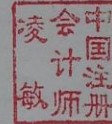 中国注册
会计师
凌敏